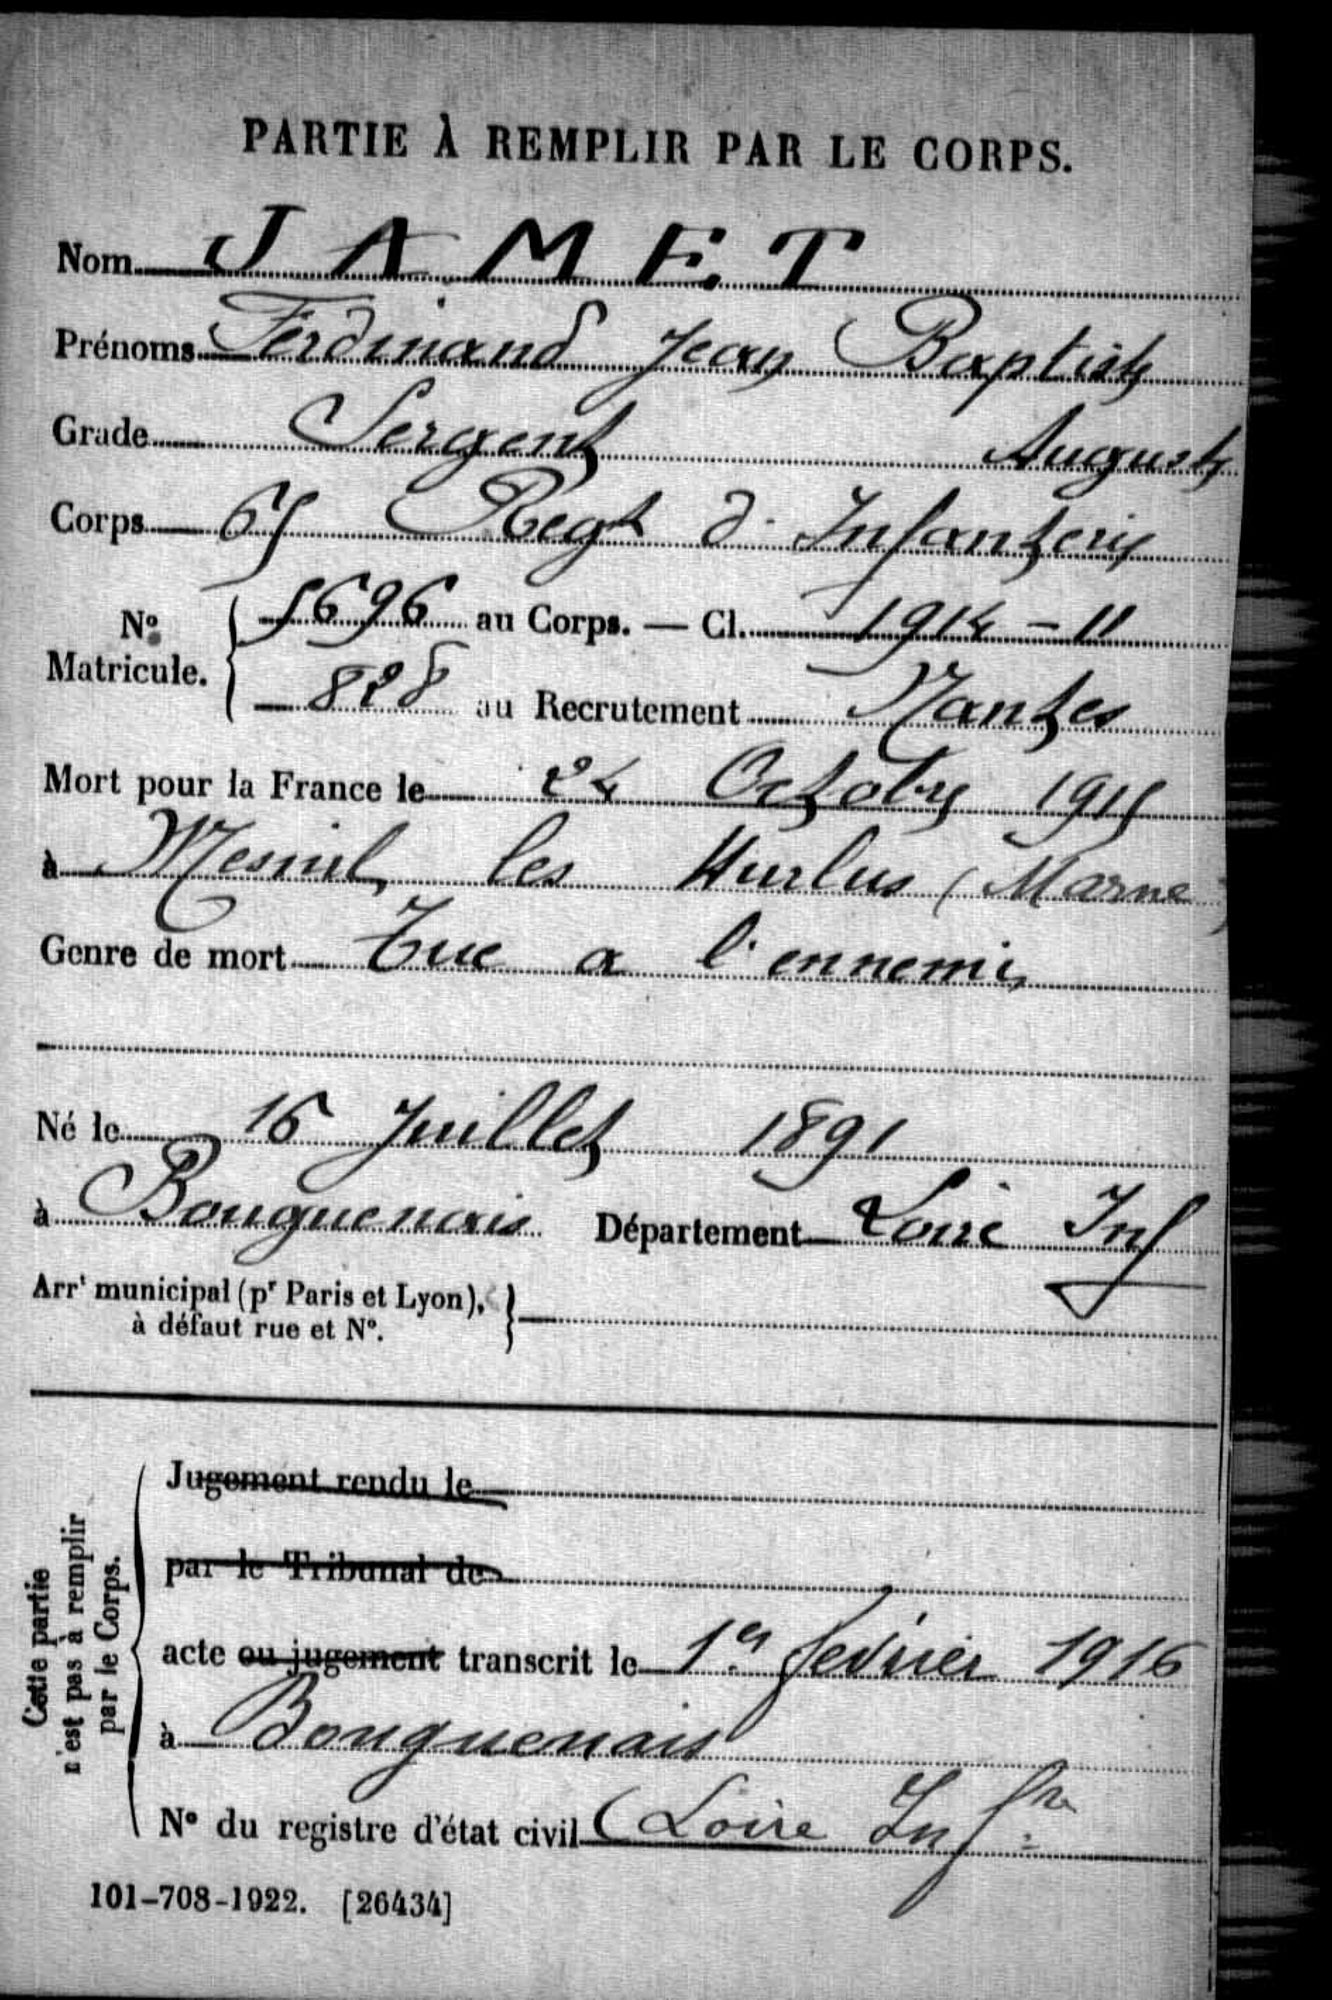 PARTIE À REMPLIR PAR LE CORPS.
Nom JAMET
Prénoms Ferdinand Jean Baptiste
Grade Sergent Auguste
Corps 65 Regt d'Infanterie
No Matricule. 5696 au Corps. — Cl. 1914 - 11
828 au Recrutement Nantes
Mort pour la France le 24 Octobre 1915
à Mesnil les Hurlus (Marne)
Genre de mort Tue a l'ennemi
Né le 16 Juillet 1891
à Bouguenais Département Loire Inf
Arrt municipal (pr Paris et Lyon),
à défaut rue et No.
Cette partie
n'est pas à remplir
par le Corps.
Jugement rendu le
par le Tribunal de
acte ou jugement transcrit le 1er fevrier 1916
à Bouguenais
No du registre d'état civil (Loire Infre
101-708-1922. [26434]